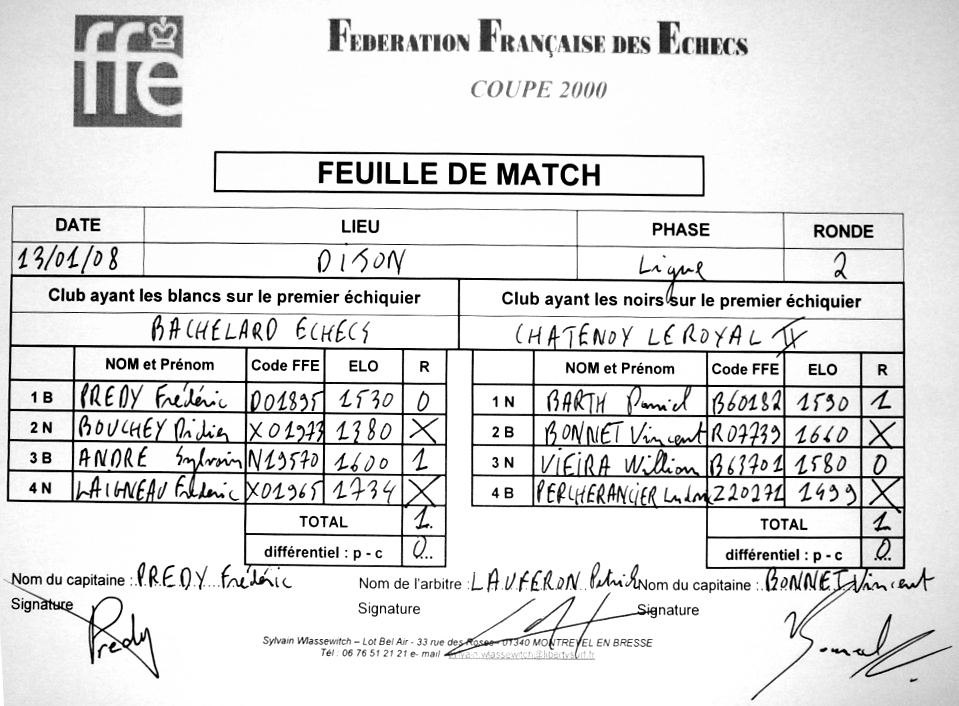 ffe
FEDERATION FRANÇAISE DES ECHECS
COUPE 2000
FEUILLE DE MATCH
DATE LIEU PHASE RONDE
13/01/08 DIJON Ligue 2
Club ayant les blancs sur le premier échiquier Club ayant les noirs sur le premier échiquier
BACHELARD ECHECS CHATENOY LE ROYAL IV
NOM et Prénom Code FFE ELO R NOM et Prénom Code FFE ELO R
1 B PREDY Frédéric D01895 1530 0 1 N BARTH Daniel B60182 1590 1
2 N BOUCHEY Didier X01973 1380 X 2 B BONNET Vincent R07739 1660 X
3 B ANDRÉ Sylvain N19570 1600 1 3 N VIEIRA William B63701 1580 0
4 N LAIGNEAU Fréderic X01965 1734 X 4 B PERCHERANCIER Z20271 1499 X
TOTAL 1 TOTAL 1
différentiel : p - c 0 différentiel : p - c 0
Nom du capitaine : PREDY Frédéric Nom de l'arbitre : LAUFERON Patrick Nom du capitaine : BONNET Vincent
Signature Signature Signature
Predy
Sylvain Wlassewitch – Lot Bel Air - 33 rue des Roses - 01340 MONTREVEL EN BRESSE
Tél : 06 76 51 21 21 e- mail : sylvain.wlassewitch@libertysurf.fr